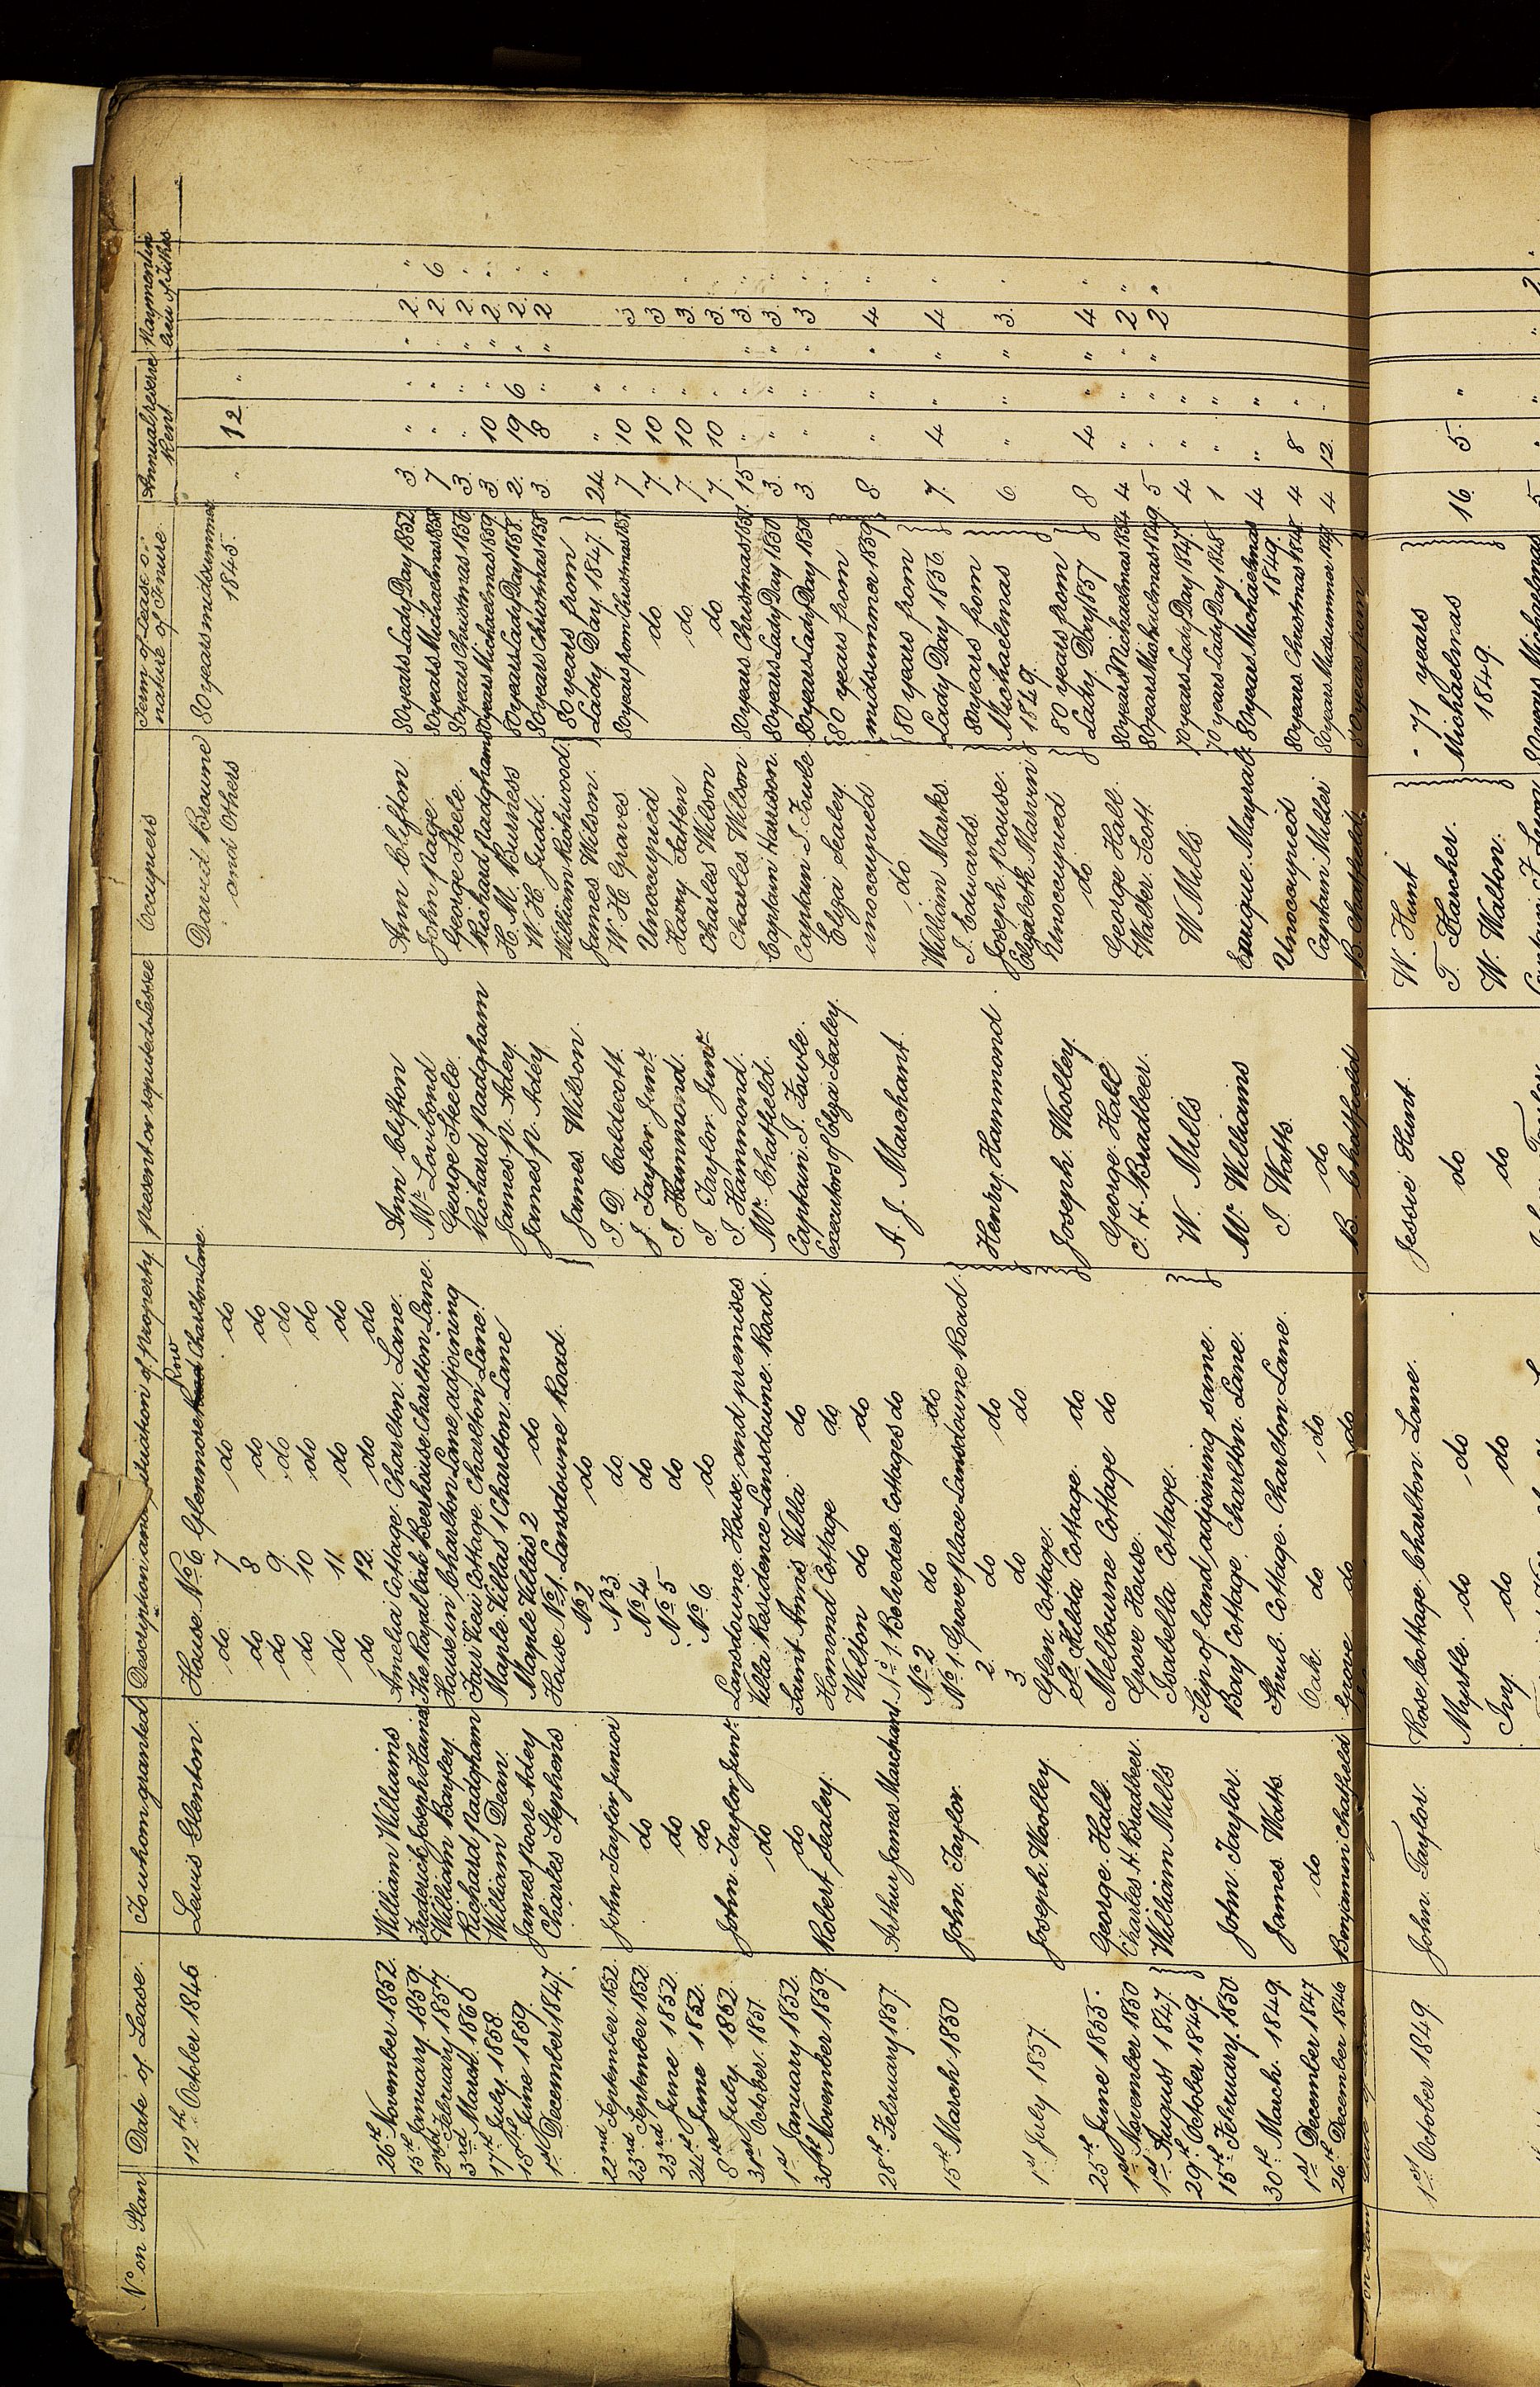 No. on Plan | Date of Lease. | To whom granted | Description and situation of property | present or reputed Lessee | Occupiers | Term of Lease or nature of Tenure | Annual reserve Rent | Payment in lieu of Tithes
12th October 1846 | Lewis Glenton. | House No. 6 Glenmore Road Row Charlton Lane. | | David Browne | 80 years midsummer | " 12 "
do 7 do do | and Others | 1845.
do 8 do do
do 9 do do
do 10 do do
do 11 do do
do 12 do do
26th November 1852. | William Williams | Amelia Cottage. Charlton Lane. | Ann Clifton | Ann Clifton | 80 years Lady Day 1852. | 3. " " | " 2. "
15th January 1859. | Frederick Joseph Haines | The Royal Oak Beerhouse. Charlton Lane. | Mr. Lovibond | John Page. | 80 years Michaelmas 1858 | 7 " " | " 2. 6
2nd February 1857. | William Bayley. | House in Charlton Lane adjoining | George Steele. | George Steele. | 80 years Christmas 1856 | 3. " " | " 2. "
3rd March 1860 | Richard Padgham | Fair View Cottage. Charlton Lane. | Richard Padgham | Richard Padgham | 80 years Michaelmas 1859 | 3. 10 " | " 2. "
17th July 1858. | William Dean. | Maple Villas 1 Charlton Lane | James P. Adey. | H. M. Burness | 80 years Lady Day 1858. | 2. 19 6 | " 2. "
15th June 1859. | James Poore Adey | Maple Villas 2 do | James P. Adey | W. H. Judd. | 80 years Christmas 1858 | 3. 8 " | " 2 "
1st December 1847. | Charles Stephens | House No. 1 Lansdowne Road. | William Richwood | 80 years from
No. 2 do | James Wilson. | James Wilson. | Lady Day 1847. | 24. " "
22nd September 1852. | John Taylor Junior | No. 3. do | J. D. Caldecott. | W. H. Graves | 80 years from Christmas 1851 | 7 10 " | 3
23rd September 1852. | do | No. 4 do | J. Taylor Junr. | Unoccupied | do | 7. 10 " | 3
23rd June 1852. | do | No. 5 do | J. Hammond. | Harry Patten | do. | 7. 10 " | 3. "
24th June 1852. | do | No. 6. do | J. Taylor Junr. | Charles Wilson | do | 7. 10 " | 3. "
8th July 1852. | John Taylor Junr. | Lansdowne House and premises | J. Hammond. | Charles Wilson | 80 years Christmas 1851. | 15 " " | " 3. "
31st October 1851. | do | Villa Residence Lansdowne Road. | Mr. Chatfield. | Captain Harrison. | 80 years Lady Day 1850 | 3. " " | " 3. "
1st January 1852. | do | Saint Anns Villa do | Captain J. Fowle. | Captain J. Fowle | 80 years Lady Day 1850 | 3. " " | " 3 "
30th November 1859. | Robert Sealey. | Homond Cottage do | Executors of Eliza Sealey. | Eliza Sealey. | 80 years from
Wilton do do | unoccupied | midsummer 1859 | 8. " " | " 4 "
28th February 1857. | Arthur James Marchant | No. 1. Belvedere Cottages do | A. J. Marchant. | do | 80 years from
No. 2 do do | William Marks. | Lady Day 1856. | 7. 4 " | " 4 "
15th March 1850 | John Taylor. | No. 1. Grove Place Lansdowne Road. | J. Edwards. | 80 years from
2. do do | Henry Hammond. | Joseph Prouse. | Michaelmas | 6. " " | " 3. "
3. do do | Elizabeth Marvin | 1849.
1st July 1857. | Joseph Woolley. | Glen Cottage. | Unoccupied | 80 years from
St. Hilda Cottage. do. | Joseph Woolley. | do. | Lady Day 1857 | 8 4 " | " 4 "
25th June 1855. | George Hall. | Melbourne Cottage do | George Hall | George Hall. | 80 years Michaelmas 1854 | 4 " " | " 2 "
1st November 1850 | Charles H. Bradbeer. | Grove House. | C. H. Bradbeer. | Walter Scott. | 80 years Michaelmas 1849 | 5 " " | " 2 "
1st August 1847. | William Mills | Isabella Cottage. | W. Mills | W Mills. | 70 years Lady Day 1847. | 4 " "
29th October 1849. | Slip of land adjoining same. | 70 years Lady Day 1848. | 1 " "
15th February 1850. | John Taylor. | Bay Cottage. Charlton Lane. | Mr. Williams | 80 years Michaelmas | 4 " "
30th March. 1849. | James Watts. | Shrub Cottage. Charlton Lane. | J. Watts. | Unoccupied | 1849.
1st December 1847 | do | Oak do do | do | Captain Miller | 80 years Christmas 1848. | 4 8 "
26th December 1846 | Benjamin Chatfield | Grove do do | B. Chatfield | B. Chatfield. | 80 years Midsummer 1847 | 4 12. "
80 years from
1st October 1849. | John Taylor. | Rose Cottage. Charlton Lane. | Jessie Hunt. | W. Hunt | 71 years
Myrtle do do | do | T. Larcher. | Michaelmas | 16. 5. "
Ivy. do do | do | W. Walton. | 1849.